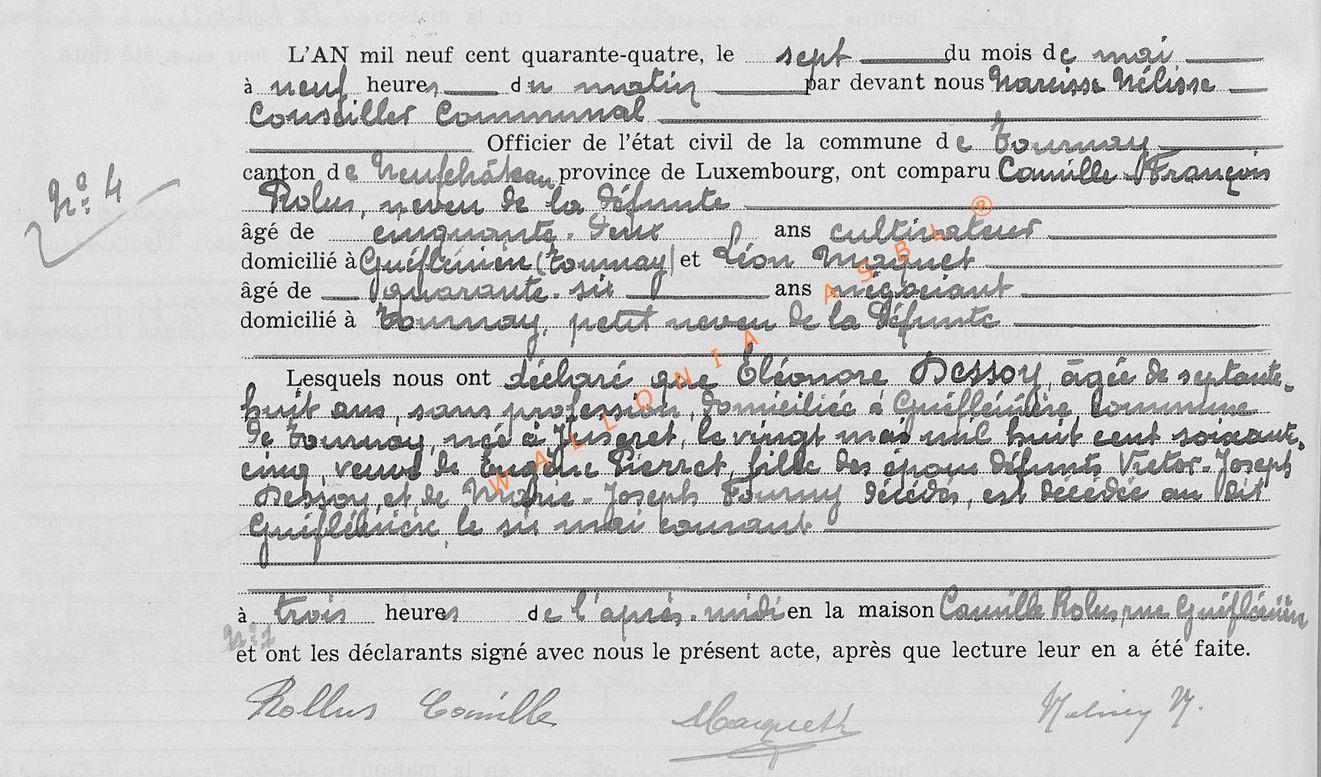 L'AN mil neuf cent quarante-quatre, le sept du mois de mai
à neuf heures du matin par devant nous Narcisse Nélisse
Conseiller Communal
Officier de l'état civil de la commune de Tournay
N° 4
canton de Neufchâteau province de Luxembourg, ont comparu Camille François
Rolus, neveu de la défunte
âgé de cinquante-deux ans cultivateur
domicilié à (Tournay) et Léon Maquet
âgé de quarante-six ans négociant
domicilié à Tournay, petit neveu de la défunte
Lesquels nous ont déclaré que Eléonore Dessoy, âgée de septante-
huit ans, sans profession, domiciliée à commune
de Tournay, née à Juseret, le vingt mai mil huit cent soixante-
cinq, veuve de Eugène Pierret, fille des époux défunts Victor-Joseph
Dessoy, et de Marie-Joseph Fourny décédés, est décédée au dit
le six mai courant
à trois heures de l'après-midi en la maison Camille Rolus, rue
et ont les déclarants signé avec nous le présent acte, après que lecture leur en a été faite.
Rollus Camille
WALLONIA ASBL ®